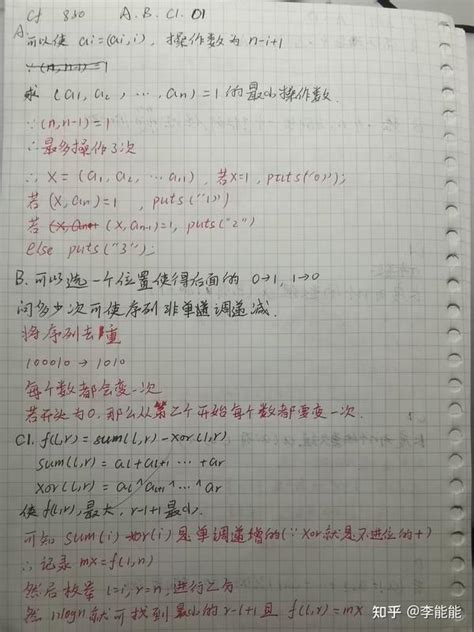 cf 830 A.B.C1.D1
A.
可以使 ai=(ai,i), 操作数为 n-i+1
∵(n,n-1)=1
求 (a1,a2,…,an)=1 的最小操作数.
∵(n,n-1)=1
∴最多操作3次
∴ X=(a1,a2,…a,1), 若x=1, puts("0");
若 (X,an)=1, puts("1")
若 (X,an (X,an-1)=1, puts("2")
else puts("3");
B. 可以选一个位置使得后面的 0→1, 1→0
问多少次可使序列非单递调递减.
将序列去重
100010→1010
每个数都会变一次
若开头为0.那么从第二个开始每个数都要变一次.
C1. f(l,r)=sum(l,r)-xor(l,r)
sum(l,r)=al+al+1…+ar
xor(l,r)=al^al+1^…^ar
使f(l,r)最大, r-l+1最小.
可知 sum(i)-xor(i)是单调递增的(∵xor就是不进位的+)
∴记录 mx=f(1,n)
然后枚举 l=i,r=n,进行二分
然 nlogn就可找到最小的r-l+1且 f(l,r)=mx
知乎 @李能能